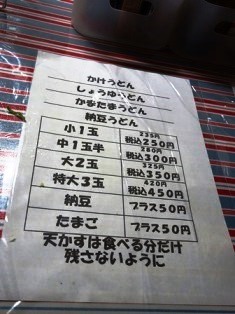 かけうどん
しょうゆうどん
かまたまうどん
納豆うどん
小1玉 235円 税込250円
中1玉半 280円 税込300円
大2玉 325円 税込350円
特大3玉 420円 税込450円
納豆 プラス50円
たまご プラス50円
天かすは食べる分だけ
残さないように